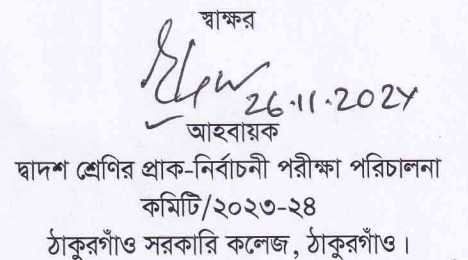 স্বাক্ষর
26.11.2024
আহবায়ক
দ্বাদশ শ্রেণির প্রাক-নির্বাচনী পরীক্ষা পরিচালনা
কমিটি/২০২৩-২৪
ঠাকুরগাঁও সরকারি কলেজ, ঠাকুরগাঁও।